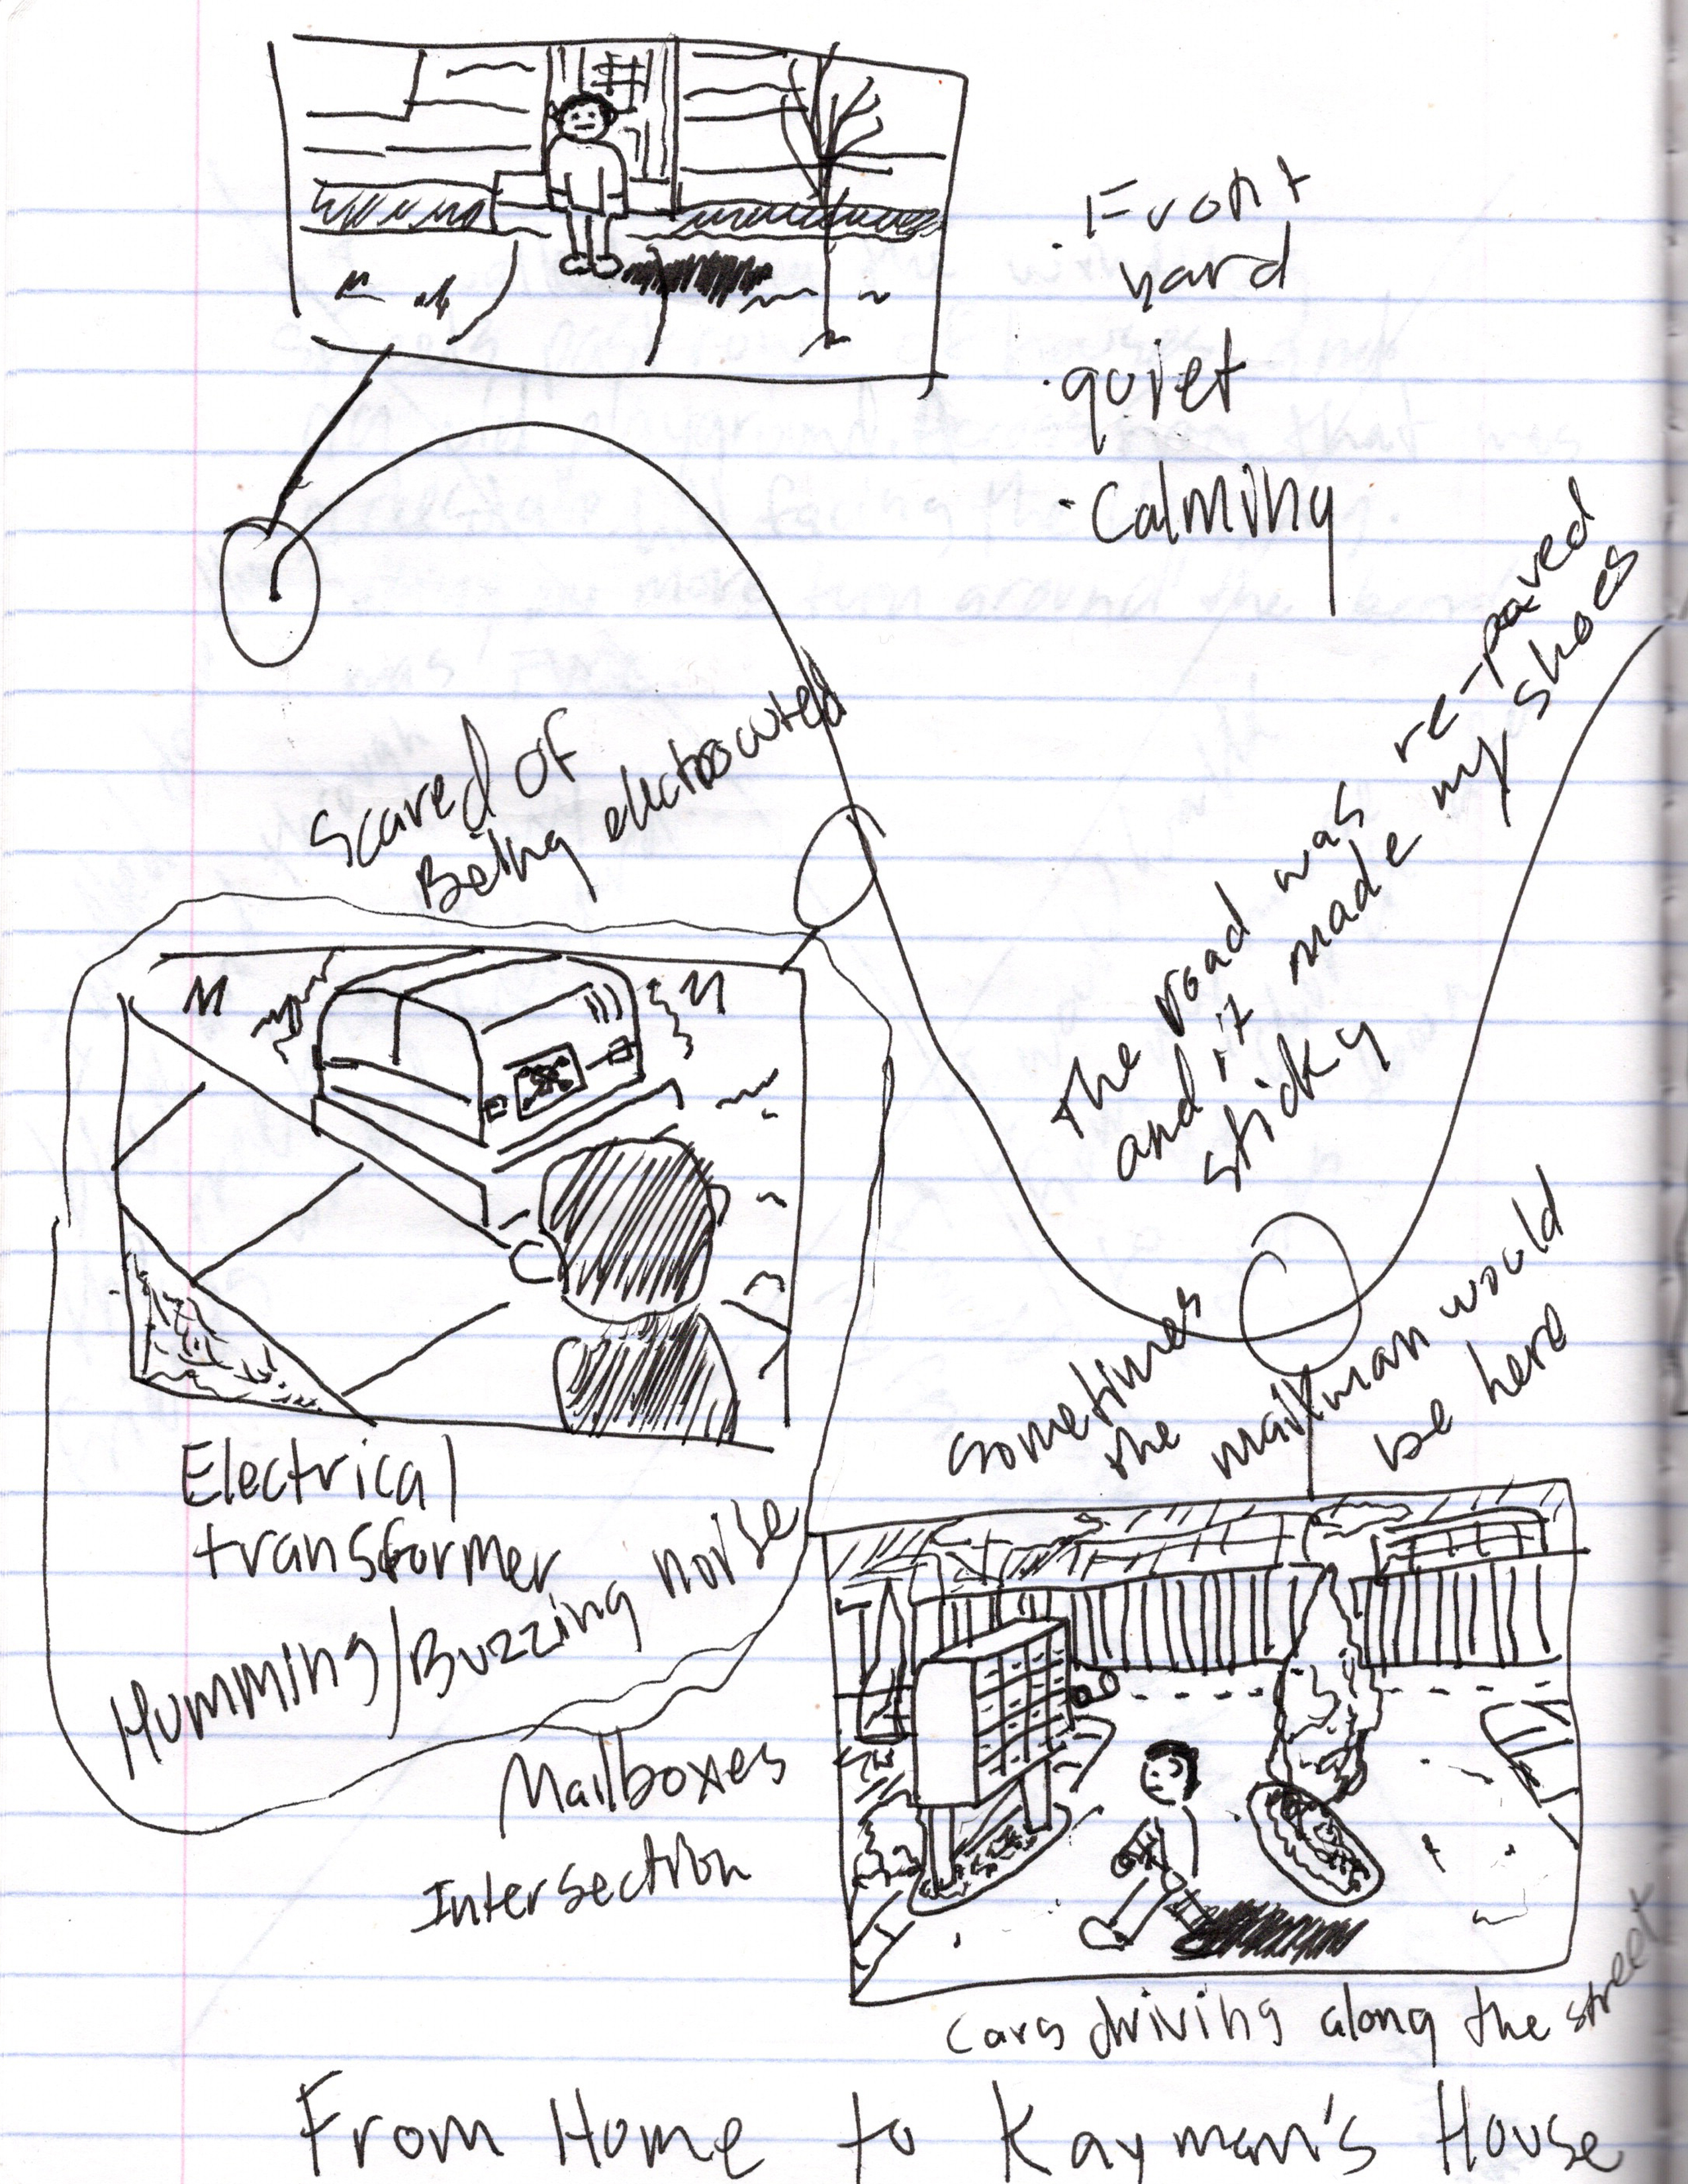 · Front
yard
· quiet
· Calming
Scared of
Being electrocuted
The road was re-paved
and it made my shoes
sticky
Electrical
transformer
Humming/Buzzing noise
sometimes
the mailman would
be here
Mailboxes
Intersection
Cars driving along the street
From Home to Kayman's House